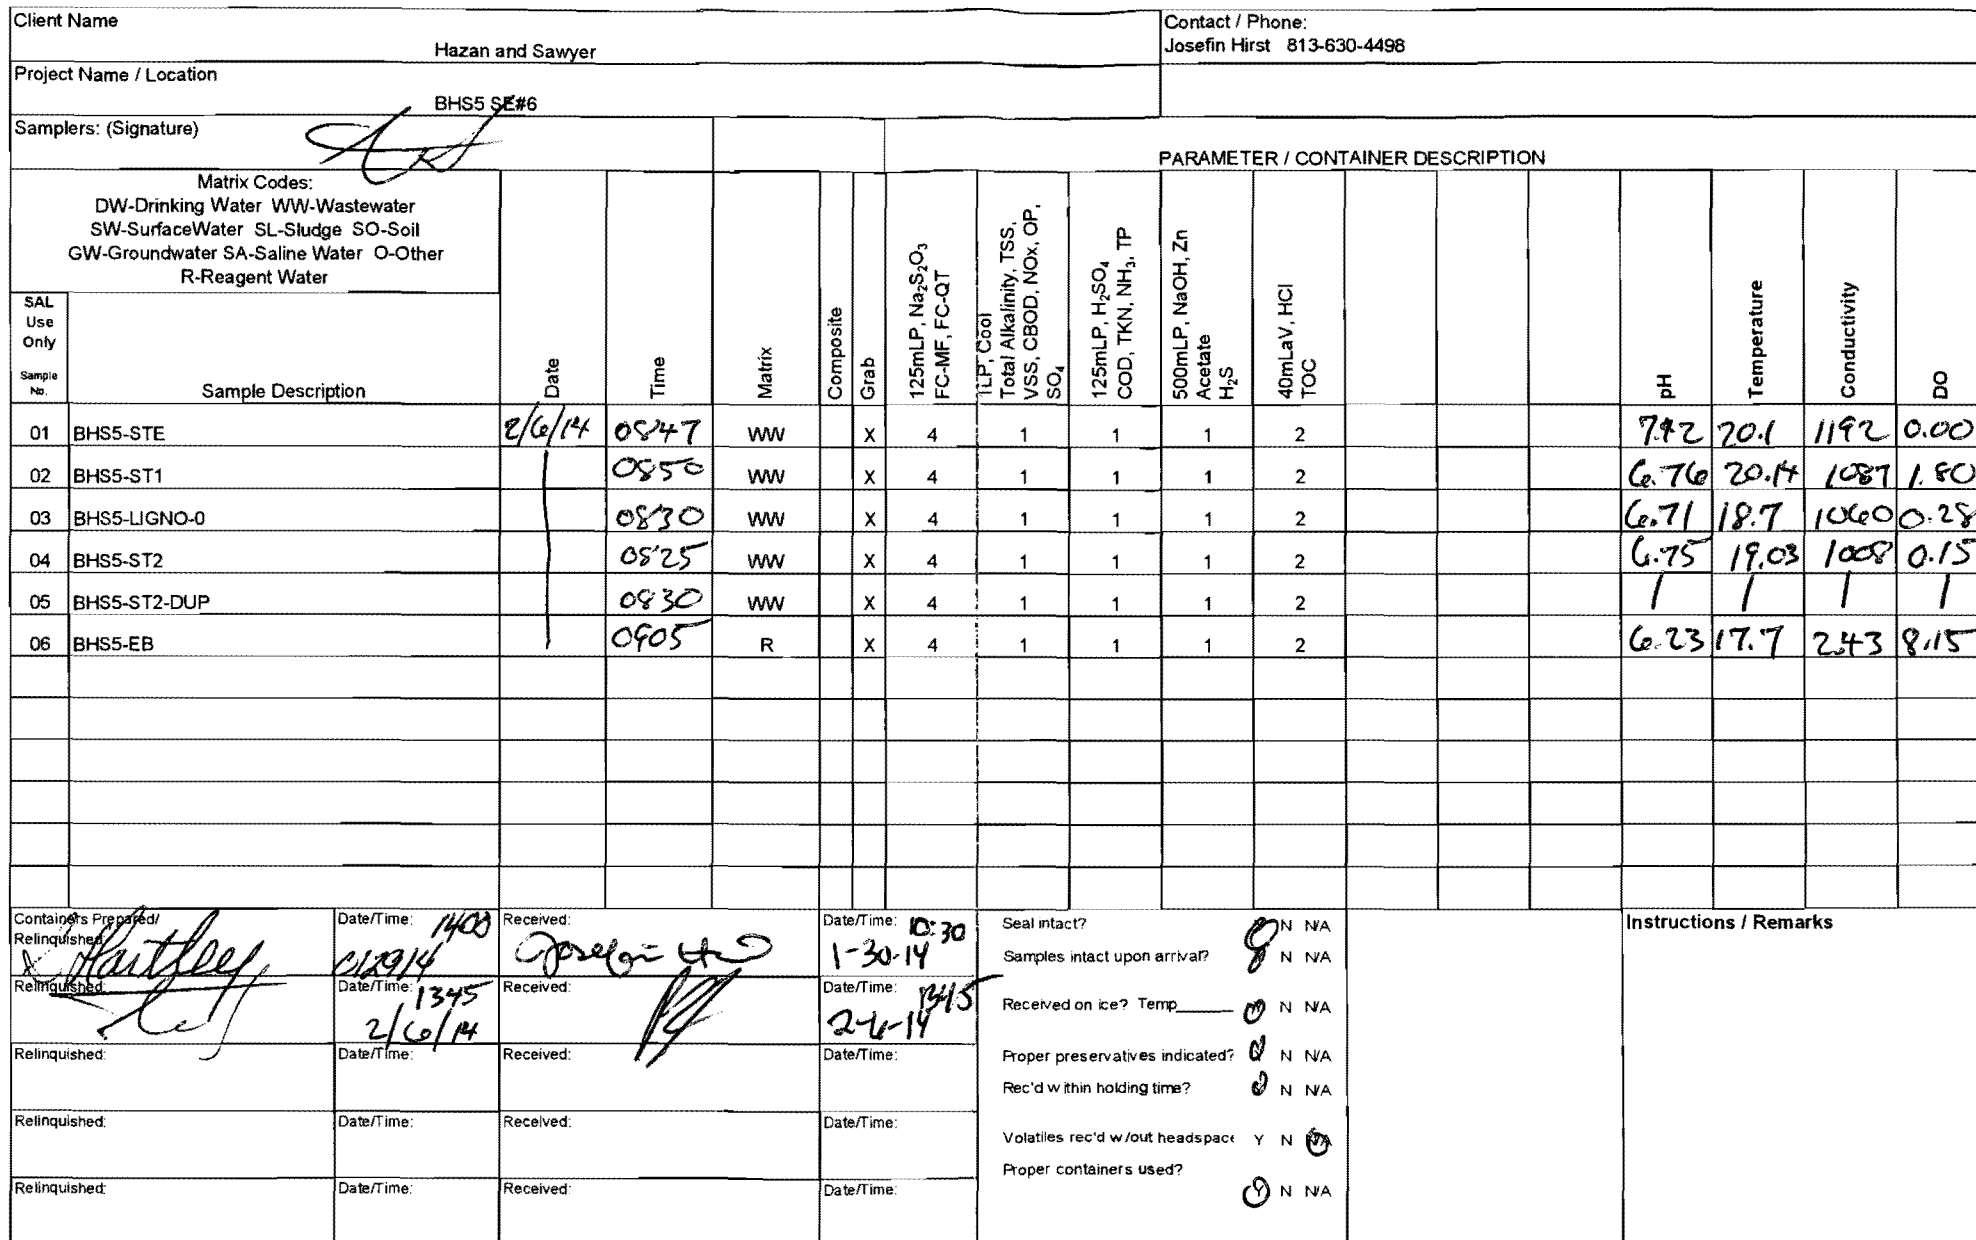 Client Name
Hazan and Sawyer
Contact / Phone:
Josefin Hirst 813-630-4498
Project Name / Location
BHS5 SE#6
Samplers: (Signature)
PARAMETER / CONTAINER DESCRIPTION
Matrix Codes:
DW-Drinking Water WW-Wastewater
SW-SurfaceWater SL-Sludge SO-Soil
GW-Groundwater SA-Saline Water O-Other
R-Reagent Water
SAL
Use
Only
Sample
No.
Sample Description
Date
Time
Matrix
Composite
Grab
125mLP, Na₂S₂O₃
FC-MF, FC-QT
1LP, Cool
Total Alkalinity, TSS,
VSS, CBOD, NOx, OP,
SO₄
125mLP, H₂SO₄
COD, TKN, NH₃, TP
500mLP, NaOH, Zn
Acetate
H₂S
40mLaV, HCl
TOC
pH
Temperature
Conductivity
DO
01 BHS5-STE 2/6/14 0847 WW X 4 1 1 1 2 7.42 20.1 1192 0.00
02 BHS5-ST1 0850 WW X 4 1 1 1 2 6.76 20.14 1087 1.80
03 BHS5-LIGNO-0 0830 WW X 4 1 1 1 2 6.71 18.7 1060 0.28
04 BHS5-ST2 0825 WW X 4 1 1 1 2 6.75 19.03 1008 0.15
05 BHS5-ST2-DUP 0830 WW X 4 1 1 1 2 / / / /
06 BHS5-EB 0905 R X 4 1 1 1 2 6.23 17.7 2.43 8.15
Containers Prepared/
Relinquished:
Hartley
Date/Time: 1400
012914
Received:
Josefin
Date/Time: 10:30
1-30-14
Seal intact? Y N N/A
Samples intact upon arrival? Y N N/A
Instructions / Remarks
Relinquished:
Date/Time: 1345
2/6/14
Received:
Date/Time: 1345
2-6-14
Received on ice? Temp______ Y N N/A
Relinquished: Date/Time: Received: Date/Time:
Proper preservatives indicated? Y N N/A
Rec'd within holding time? Y N N/A
Relinquished: Date/Time: Received: Date/Time:
Volatiles rec'd w/out headspace Y N N/A
Proper containers used?
Y N N/A
Relinquished: Date/Time: Received: Date/Time: